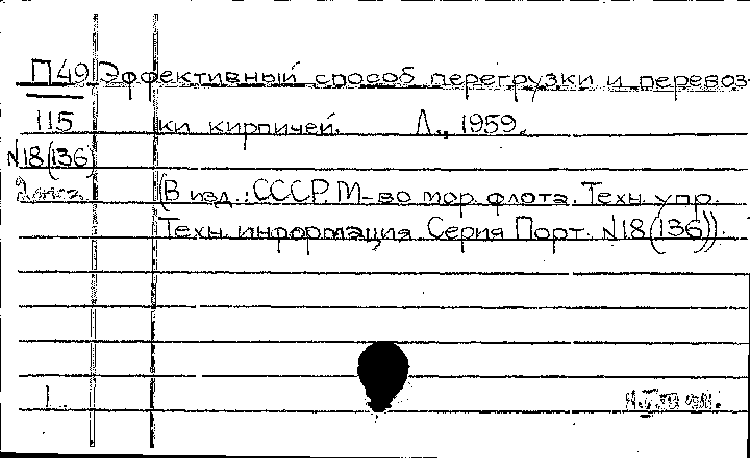 П49 Эффективный способ перегрузки и перевоз-
115 ки кирпичей. Л., 1959.
N18(136)
2 экз. (В изд.: СССР. М-во мор. флота. Техн. упр.
Техн. информация. Серия Порт. N18(136)).
1.